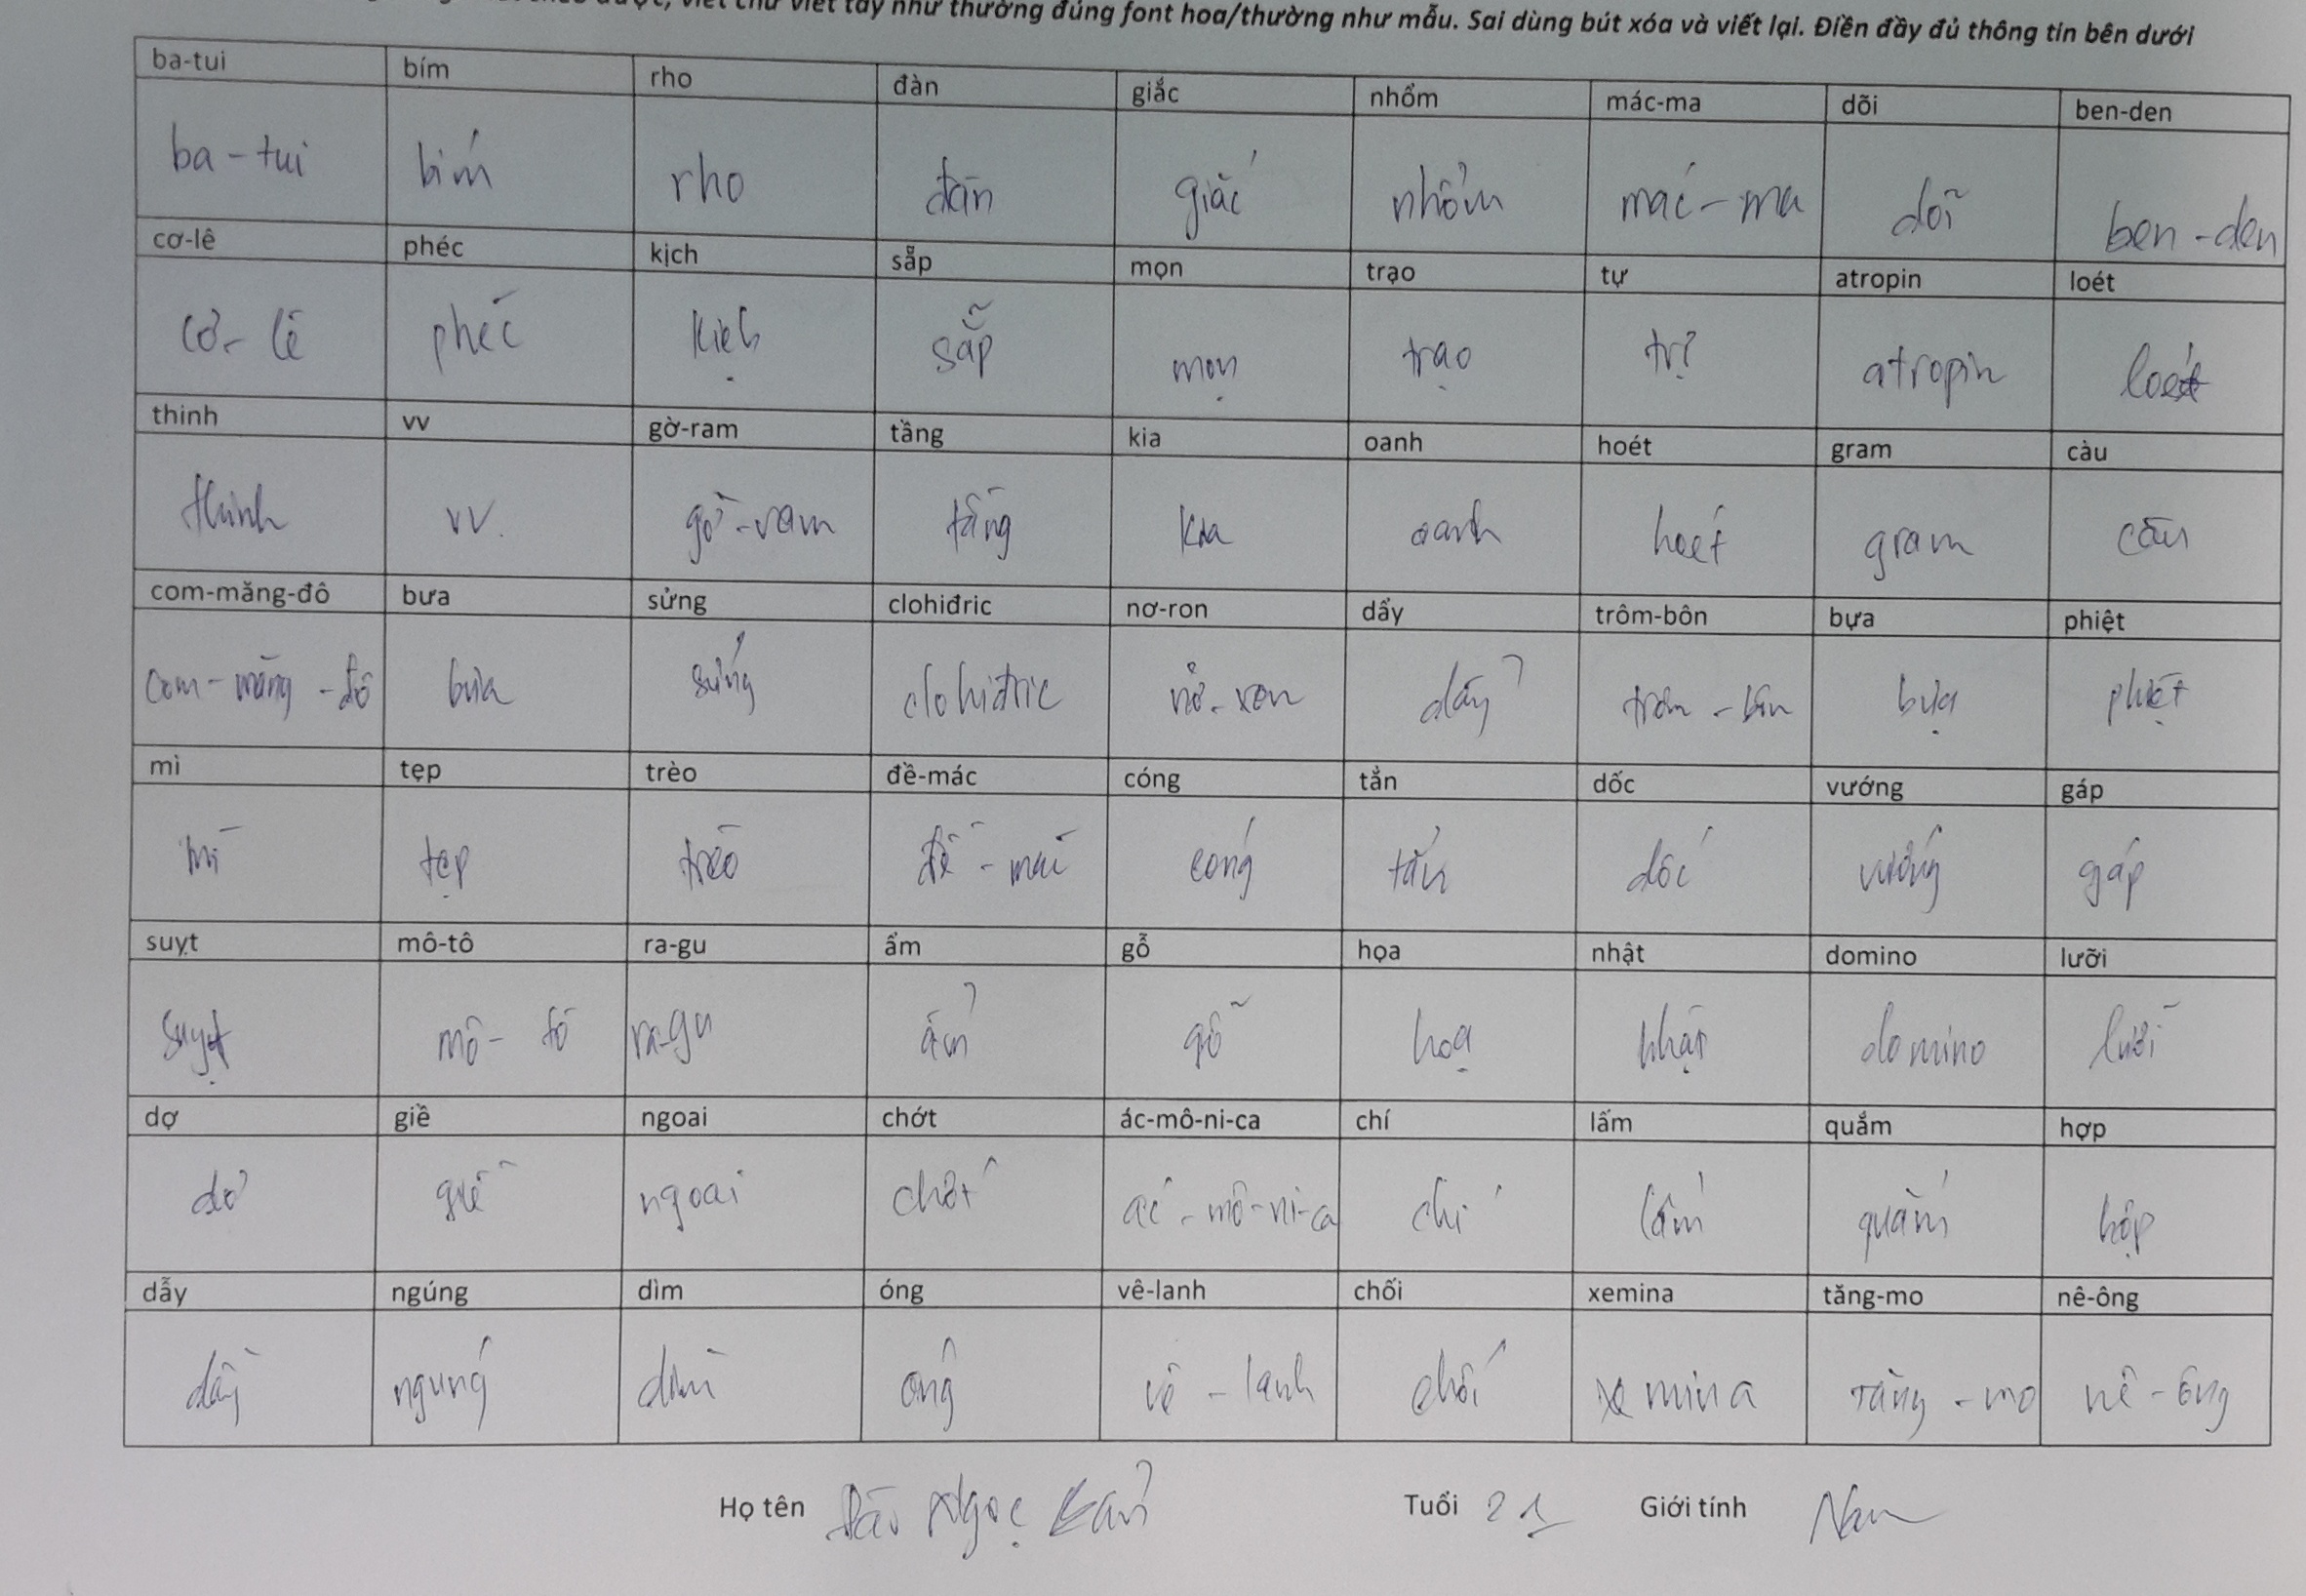 viết chữ viết tay như thường đúng font hoa/thường như mẫu. Sai dùng bút xóa và viết lại. Điền đầy đủ thông tin bên dưới
ba-tui bím rho đàn giắc nhổm mác-ma dõi ben-den
ba-tui bím rho đàn giắc nhổm mác-ma dõi ben-den
cơ-lê phéc kịch sẵp mọn trạo tự atropin loét
cơ-lê phéc kịch sẵp mọn trạo tự atropin loét
thinh vv gờ-ram tầng kia oanh hoét gram càu
thinh vv. gờ-ram tầng kia oanh hoét gram càu
com-măng-đô bưa sửng clohiđric nơ-ron dẩy trôm-bôn bựa phiệt
com-măng-đô bưa sửng clohiđric nơ-ron dẩy trôm-bôn bựa phiệt
mì tẹp trèo đề-mác cóng tẳn dốc vướng gáp
mì tẹp trèo đề-mác cóng tẳn dốc vướng gáp
suỵt mô-tô ra-gu ẩm gỗ họa nhật domino lưỡi
suỵt mô-tô ra-gu ẩm gỗ họa nhật domino lưỡi
dợ giề ngoai chớt ác-mô-ni-ca chí lấm quắm hợp
dợ giề ngoai chớt ác-mô-ni-ca chí lấm quắm hợp
dẫy ngúng dìm óng vê-lanh chối xemina tăng-mo nê-ông
dẫy ngúng dìm óng vê-lanh chối xemina tăng-mo nê-ông
Họ tên Ngọc Tuổi 21 Giới tính Nam